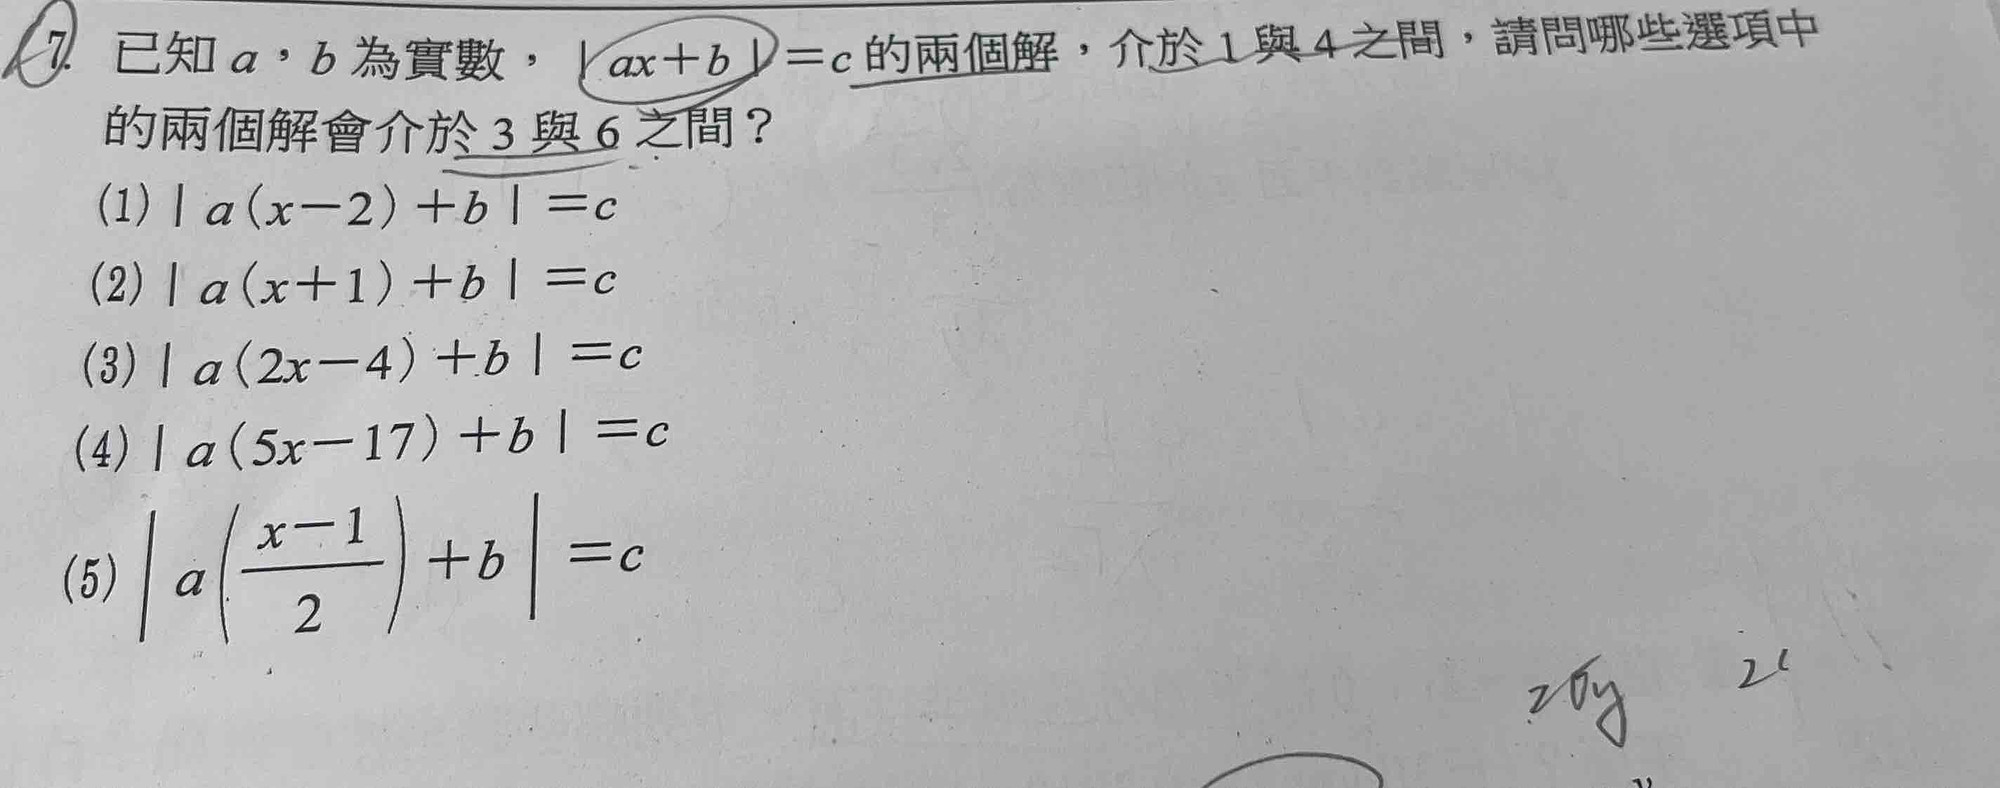 7. 已知 a,b 為實數,|ax+b|=c 的兩個解,介於 1 與 4 之間,請問哪些選項中
的兩個解會介於 3 與 6 之間?
(1)|a(x-2)+b|=c
(2)|a(x+1)+b|=c
(3)|a(2x-4)+b|=c
(4)|a(5x-17)+b|=c
(5)|a((x-1)/2)+b|=c